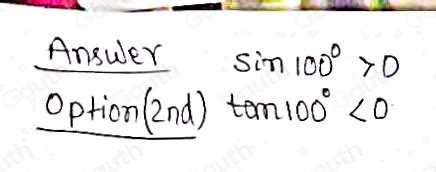 Answer sin 100° >0
Option (2nd) tan 100° <0